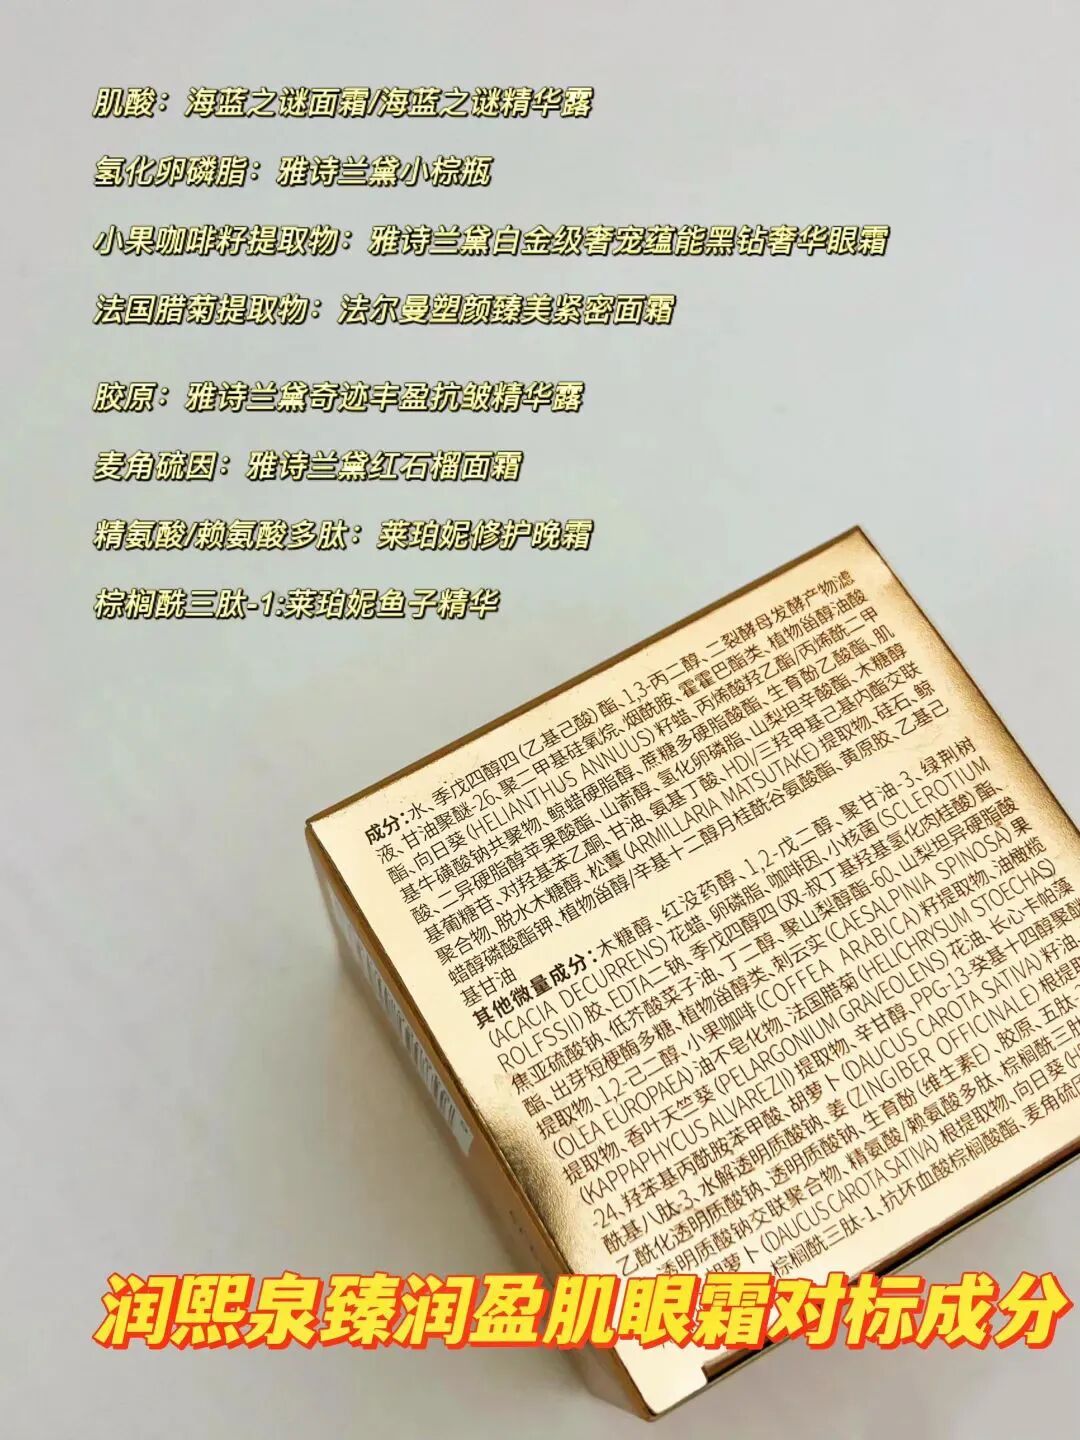 肌酸：海蓝之谜面霜/海蓝之谜精华露
氢化卵磷脂：雅诗兰黛小棕瓶
小果咖啡籽提取物：雅诗兰黛白金级奢宠蕴能黑钻奢华眼霜
法国腊菊提取物：法尔曼塑颜臻美紧密面霜
胶原：雅诗兰黛奇迹丰盈抗皱精华露
麦角硫因：雅诗兰黛红石榴面霜
精氨酸/赖氨酸多肽：莱珀妮修护晚霜
棕榈酰三肽-1:莱珀妮鱼子精华
成分：水、季戊四醇四(乙基己酸)酯、1,3-丙二醇、二裂酵母发酵产物滤
液、甘油聚醚-26、聚二甲基硅氧烷、烟酰胺、霍霍巴酯类、植物甾醇油酸
酯、向日葵(HELIANTHUS ANNUUS)籽蜡、丙烯酸羟乙酯/丙烯酰二甲
基牛磺酸钠共聚物、鲸蜡硬脂醇、蔗糖多硬脂酸酯、生育酚乙酸酯、肌
酸、二异硬脂醇苹果酸酯、山嵛醇、氢化卵磷脂、山梨坦辛酸酯、木糖醇
基葡糖苷、对羟基苯乙酮、甘油、氨基丁酸、HDI/三羟甲基己基内酯交联
聚合物、脱水木糖醇、松蕈(ARMILLARIA MATSUTAKE)提取物、硅石、鲸
蜡醇磷酸酯钾、植物甾醇/辛基十二醇月桂酰谷氨酸酯、黄原胶、乙基己
基甘油
其他微量成分：木糖醇、红没药醇、1,2-戊二醇、聚甘油-3、绿荆树
(ACACIA DECURRENS)花蜡、卵磷脂、咖啡因、小核菌(SCLEROTIUM
ROLFSSII)胶、EDTA二钠、季戊四醇四(双-叔丁基羟基氢化肉桂酸)酯、
焦亚硫酸钠、低芥酸菜子油、丁二醇、聚山梨醇酯-60、山梨坦异硬脂酸
酯、出芽短梗酶多糖、植物甾醇类、刺云实(CAESALPINIA SPINOSA)果
提取物、1,2-己二醇、小果咖啡(COFFEA ARABICA)籽提取物、油橄榄
(OLEA EUROPAEA)油不皂化物、法国腊菊(HELICHRYSUM STOECHAS)
提取物、香叶天竺葵(PELARGONIUM GRAVEOLENS)花油、长心卡帕藻
(KAPPAPHYCUS ALVAREZII)提取物、辛甘醇、PPG-13-癸基十四醇聚醚
-24、羟苯基丙酰胺苯甲酸、胡萝卜(DAUCUS CAROTA SATIVA)籽油、
酰基八肽-3、水解透明质酸钠、姜(ZINGIBER OFFICINALE)根提取
乙酰化透明质酸钠、透明质酸钠、生育酚(维生素E)、胶原、五肽-
透明质酸钠交联聚合物、精氨酸/赖氨酸多肽、棕榈酰三肽
胡萝卜(DAUCUS CAROTA SATIVA)根提取物、向日葵(H
棕榈酰三肽-1、抗坏血酸棕榈酸酯、麦角硫因
润熙泉臻润盈肌眼霜对标成分